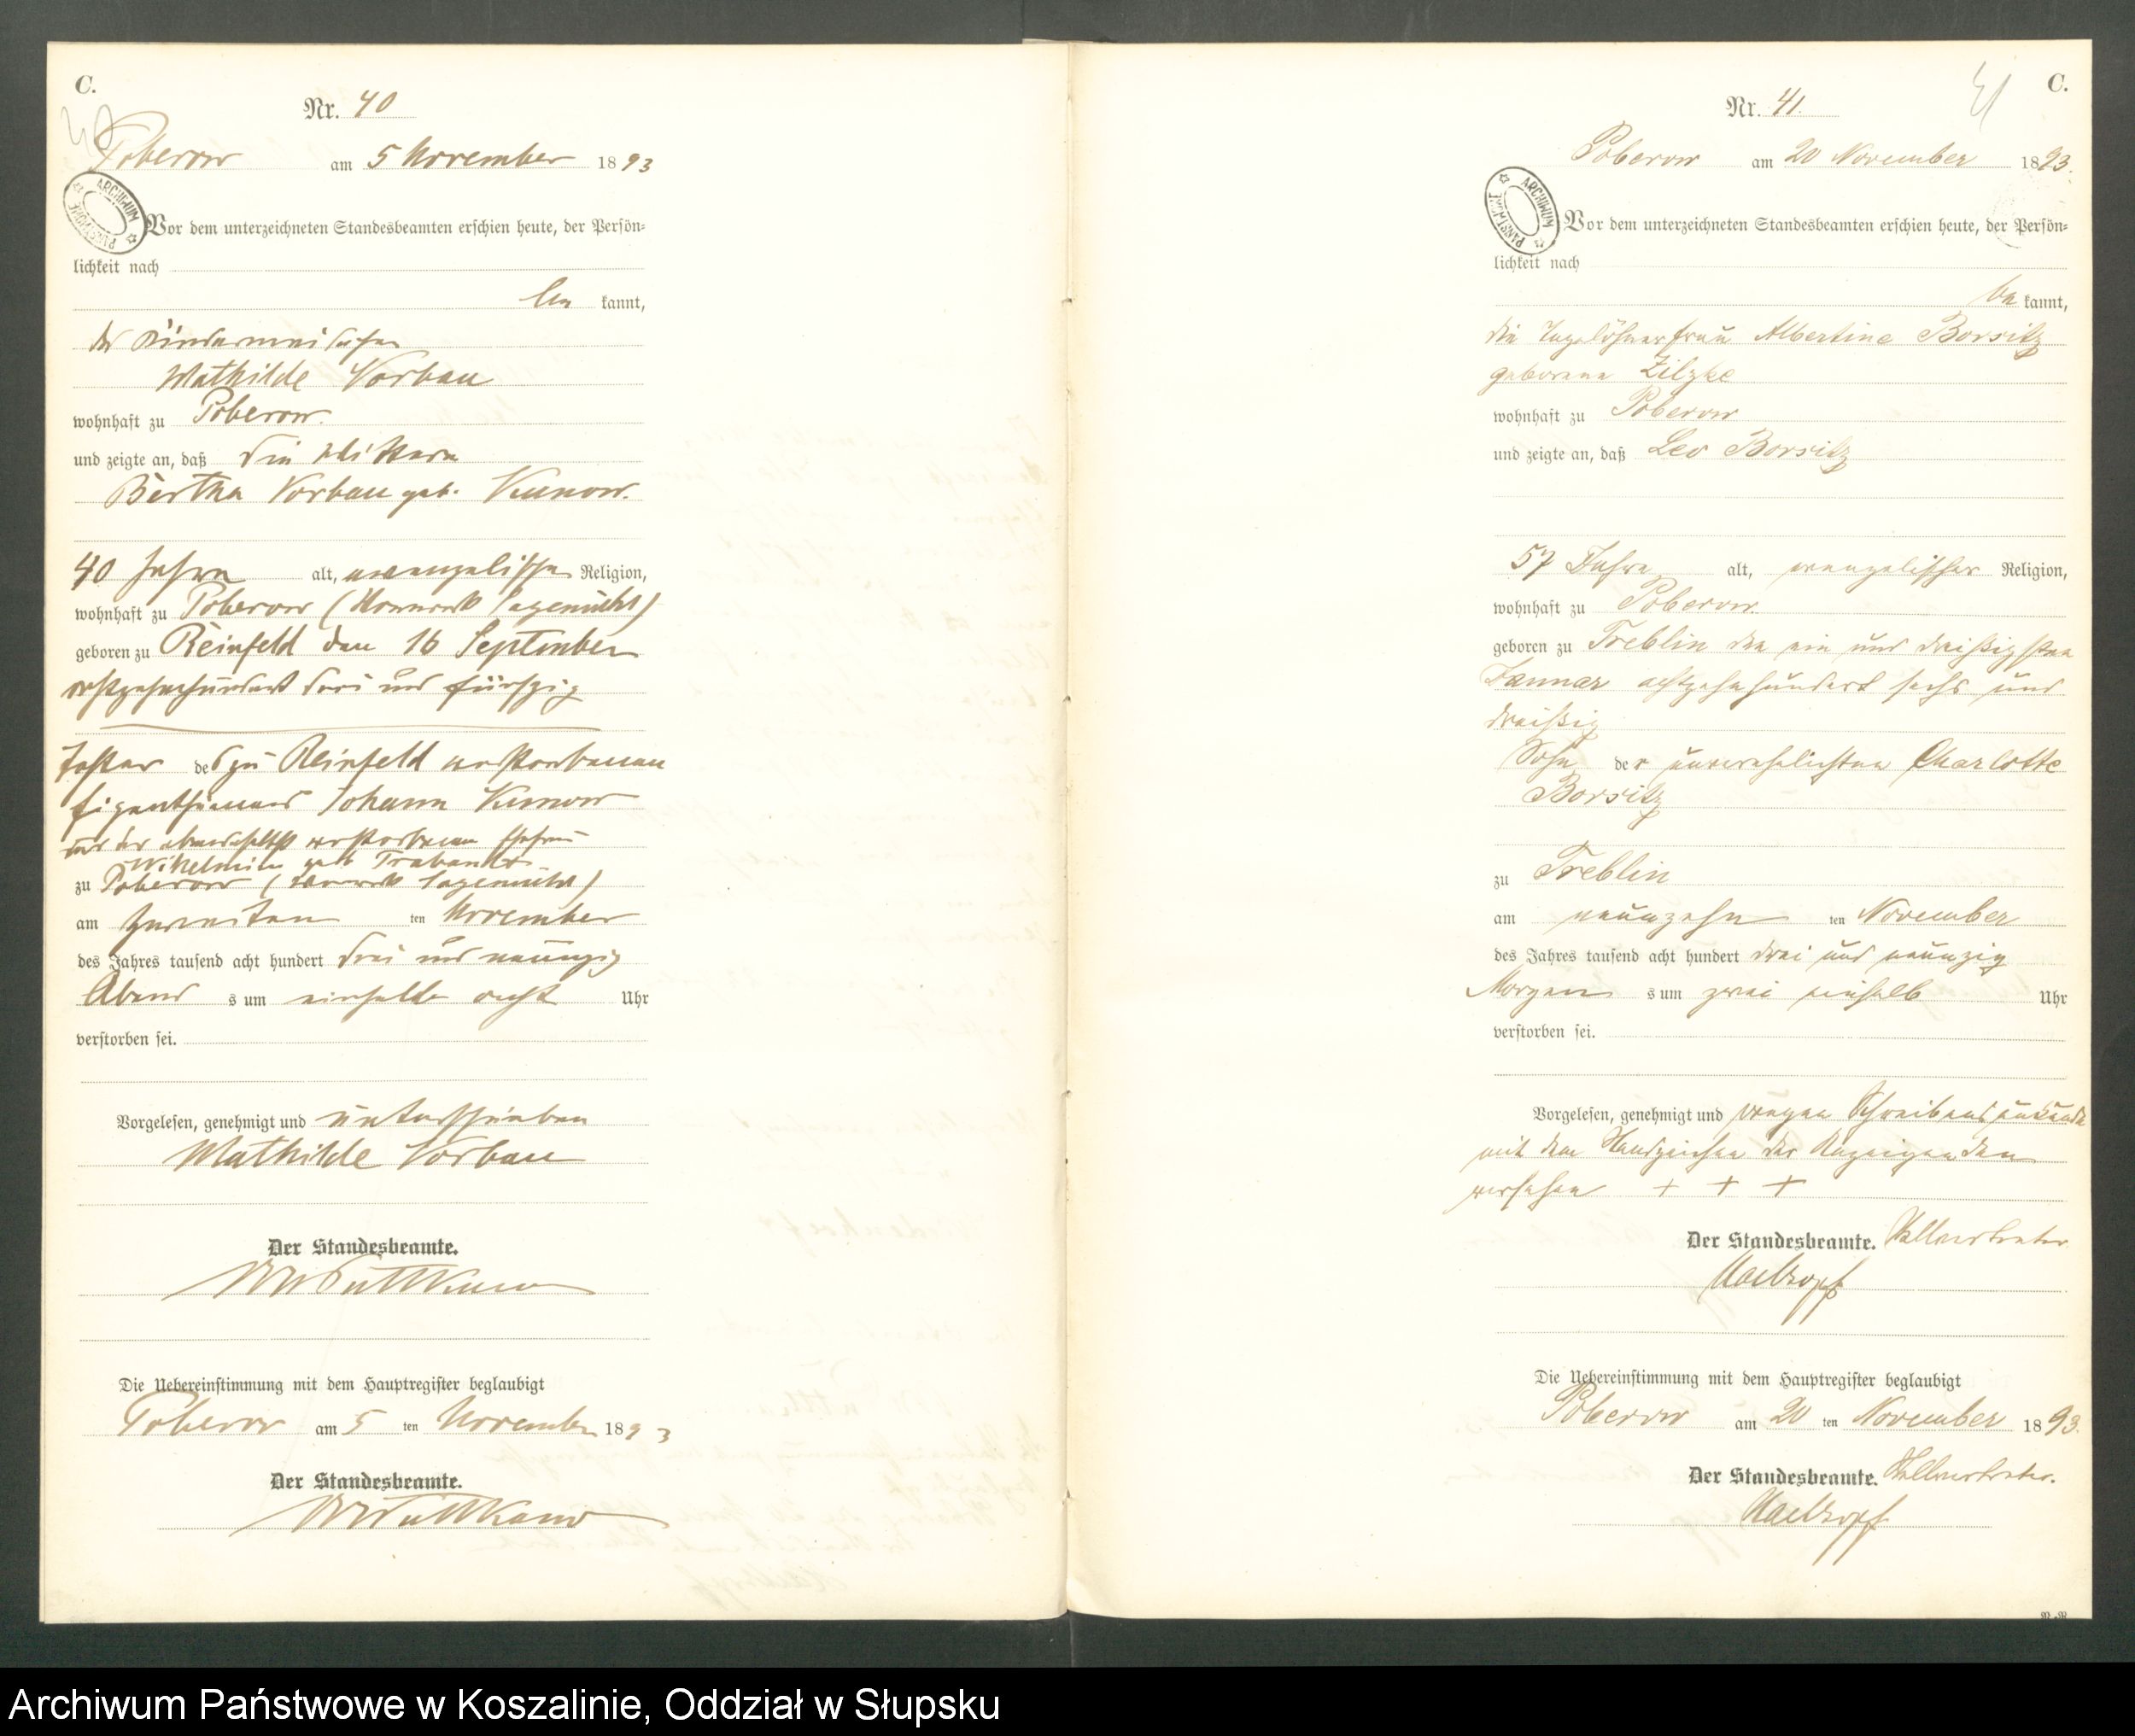 C.
Nr. 40
Poberow am 5 November 1893
ARCHIWUM PAŃSTWOWE
Vor dem unterzeichneten Standesbeamten erschien heute, der Persön-
lichkeit nach
be kannt,
Mathilde Vorbau
wohnhaft zu Poberow.
und zeigte an, daß die
Bertha Vorbau geb. Kunow.
40 Jahre alt, evangelischer Religion,
wohnhaft zu Poberow (Vorwerk Sagemühl)
geboren zu Reinfeld den 16 September
achtzehnhundert drei und fünfzig
Tochter des zu Reinfeld verstorbenen
Eigenthümers Johann Kunow
und der ebendaselbst verstorbenen Ehefrau
Wilhelmine geb Trabandt
zu Poberow (Vorwerk Sagemühl)
am zweiten ten November
des Jahres tausend acht hundert drei und neunzig
Abend s um einhalb acht Uhr
verstorben sei.
Vorgelesen, genehmigt und unterschrieben
Mathilde Vorbau
Der Standesbeamte.
Puttkamer
Die Uebereinstimmung mit dem Hauptregister beglaubigt
Poberow am 5 ten November 1893
Der Standesbeamte.
Puttkamer
C.
41
Nr. 41.
Poberow am 20 November 1893.
ARCHIWUM PAŃSTWOWE
Vor dem unterzeichneten Standesbeamten erschien heute, der Persön-
lichkeit nach
be kannt,
die Tagelöhnerfrau Albertine Borsitz
geborene Zilzke
wohnhaft zu Poberow
und zeigte an, daß Leo Borsitz
57 Jahre alt, evangelischer Religion,
wohnhaft zu Poberow.
geboren zu Treblin den ein und dreißigsten
Januar achtzehnhundert sechs und
dreißig
Sohn der unverehelichten Charlotte
Borsitz
zu Treblin
am neunzehn ten November
des Jahres tausend acht hundert drei und neunzig
Morgen s um zwei einhalb Uhr
verstorben sei.
Vorgelesen, genehmigt und wegen Schreibensunkunde
mit dem Handzeichen der Anzeigenden
versehen + + +
Der Standesbeamte. Stellvertreter
Die Uebereinstimmung mit dem Hauptregister beglaubigt
Poberow am 20 ten November 1893.
Der Standesbeamte. Stellvertreter.
Archiwum Państwowe w Koszalinie, Oddział w Słupsku